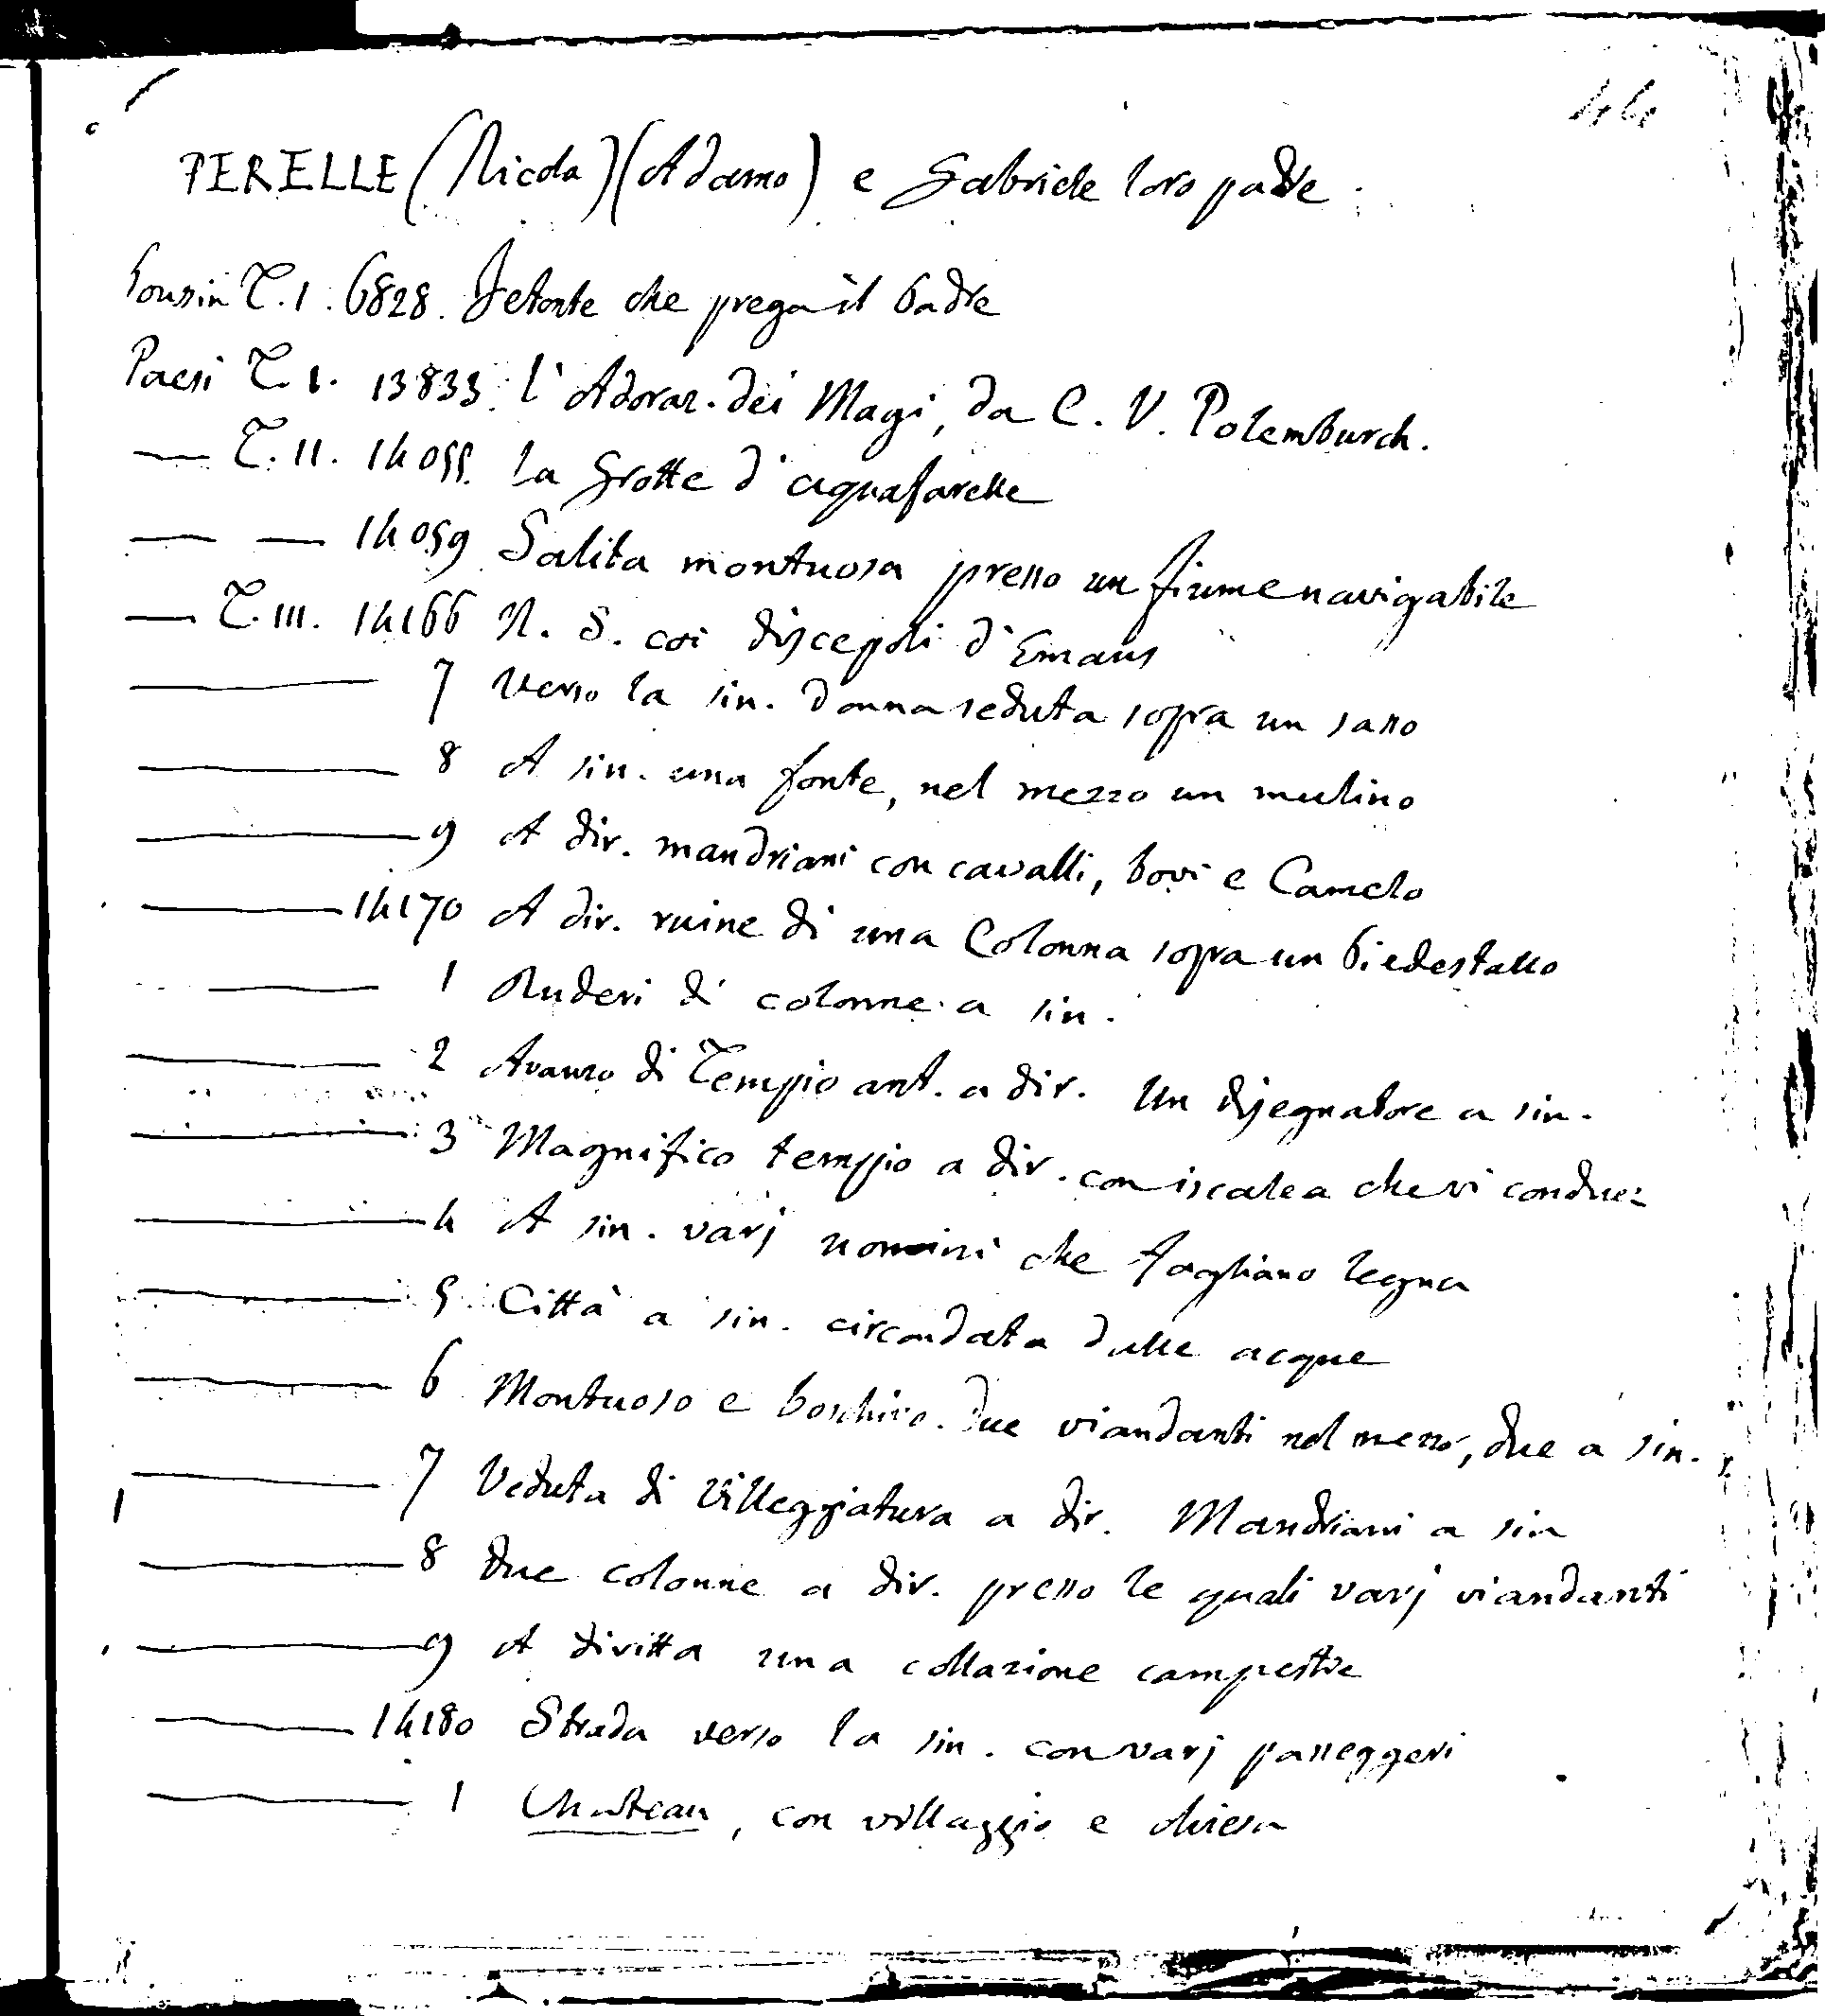 44
PERELLE (Nicola) (Adamo) e Gabriele loro padre.
Pousin T. I. 6828. Fetonte che prega il Padre
Paesi T. I. 13833. l'Adoraz. dei Magi, da C. V. Polemburch.
— T. II. 14055. La Grotte d'aquafarelle
— — 14059 Salita montuosa presso un fiume navigabile
— T. III. 14166 N. S. coi discepoli d'Emaus
— 7 Verso la sin. donna seduta sopra un sasso
— 8 A sin. una fonte, nel mezzo un mulino
— 9 A dir. mandriani con cavalli, bovi e Camelo
— 14170 A dir. ruine di una Colonna sopra un Piedestallo
— 1 Ruderi di colonne a sin.
— 2 Avanzo di Tempio ant. a dir. Un disegnatore a sin.
— 3 Magnifico tempio a dir. con iscalea che vi conduce
— 4 A sin. varj uomini che tagliano legna
— 5 Città a sin. circondata dalle acque
— 6 Montuoso e boschivo. Due viandanti nel mezzo, due a sin.
— 7 Veduta di Villeggiatura a dir. Mandriani a sin
— 8 Due colonne a dir. presso le quali varj viandanti
— 9 A diritta una collazione campestre
— 14180 Strada verso la sin. con varj passeggeri
— 1 Chateau, con villaggio e chiesa